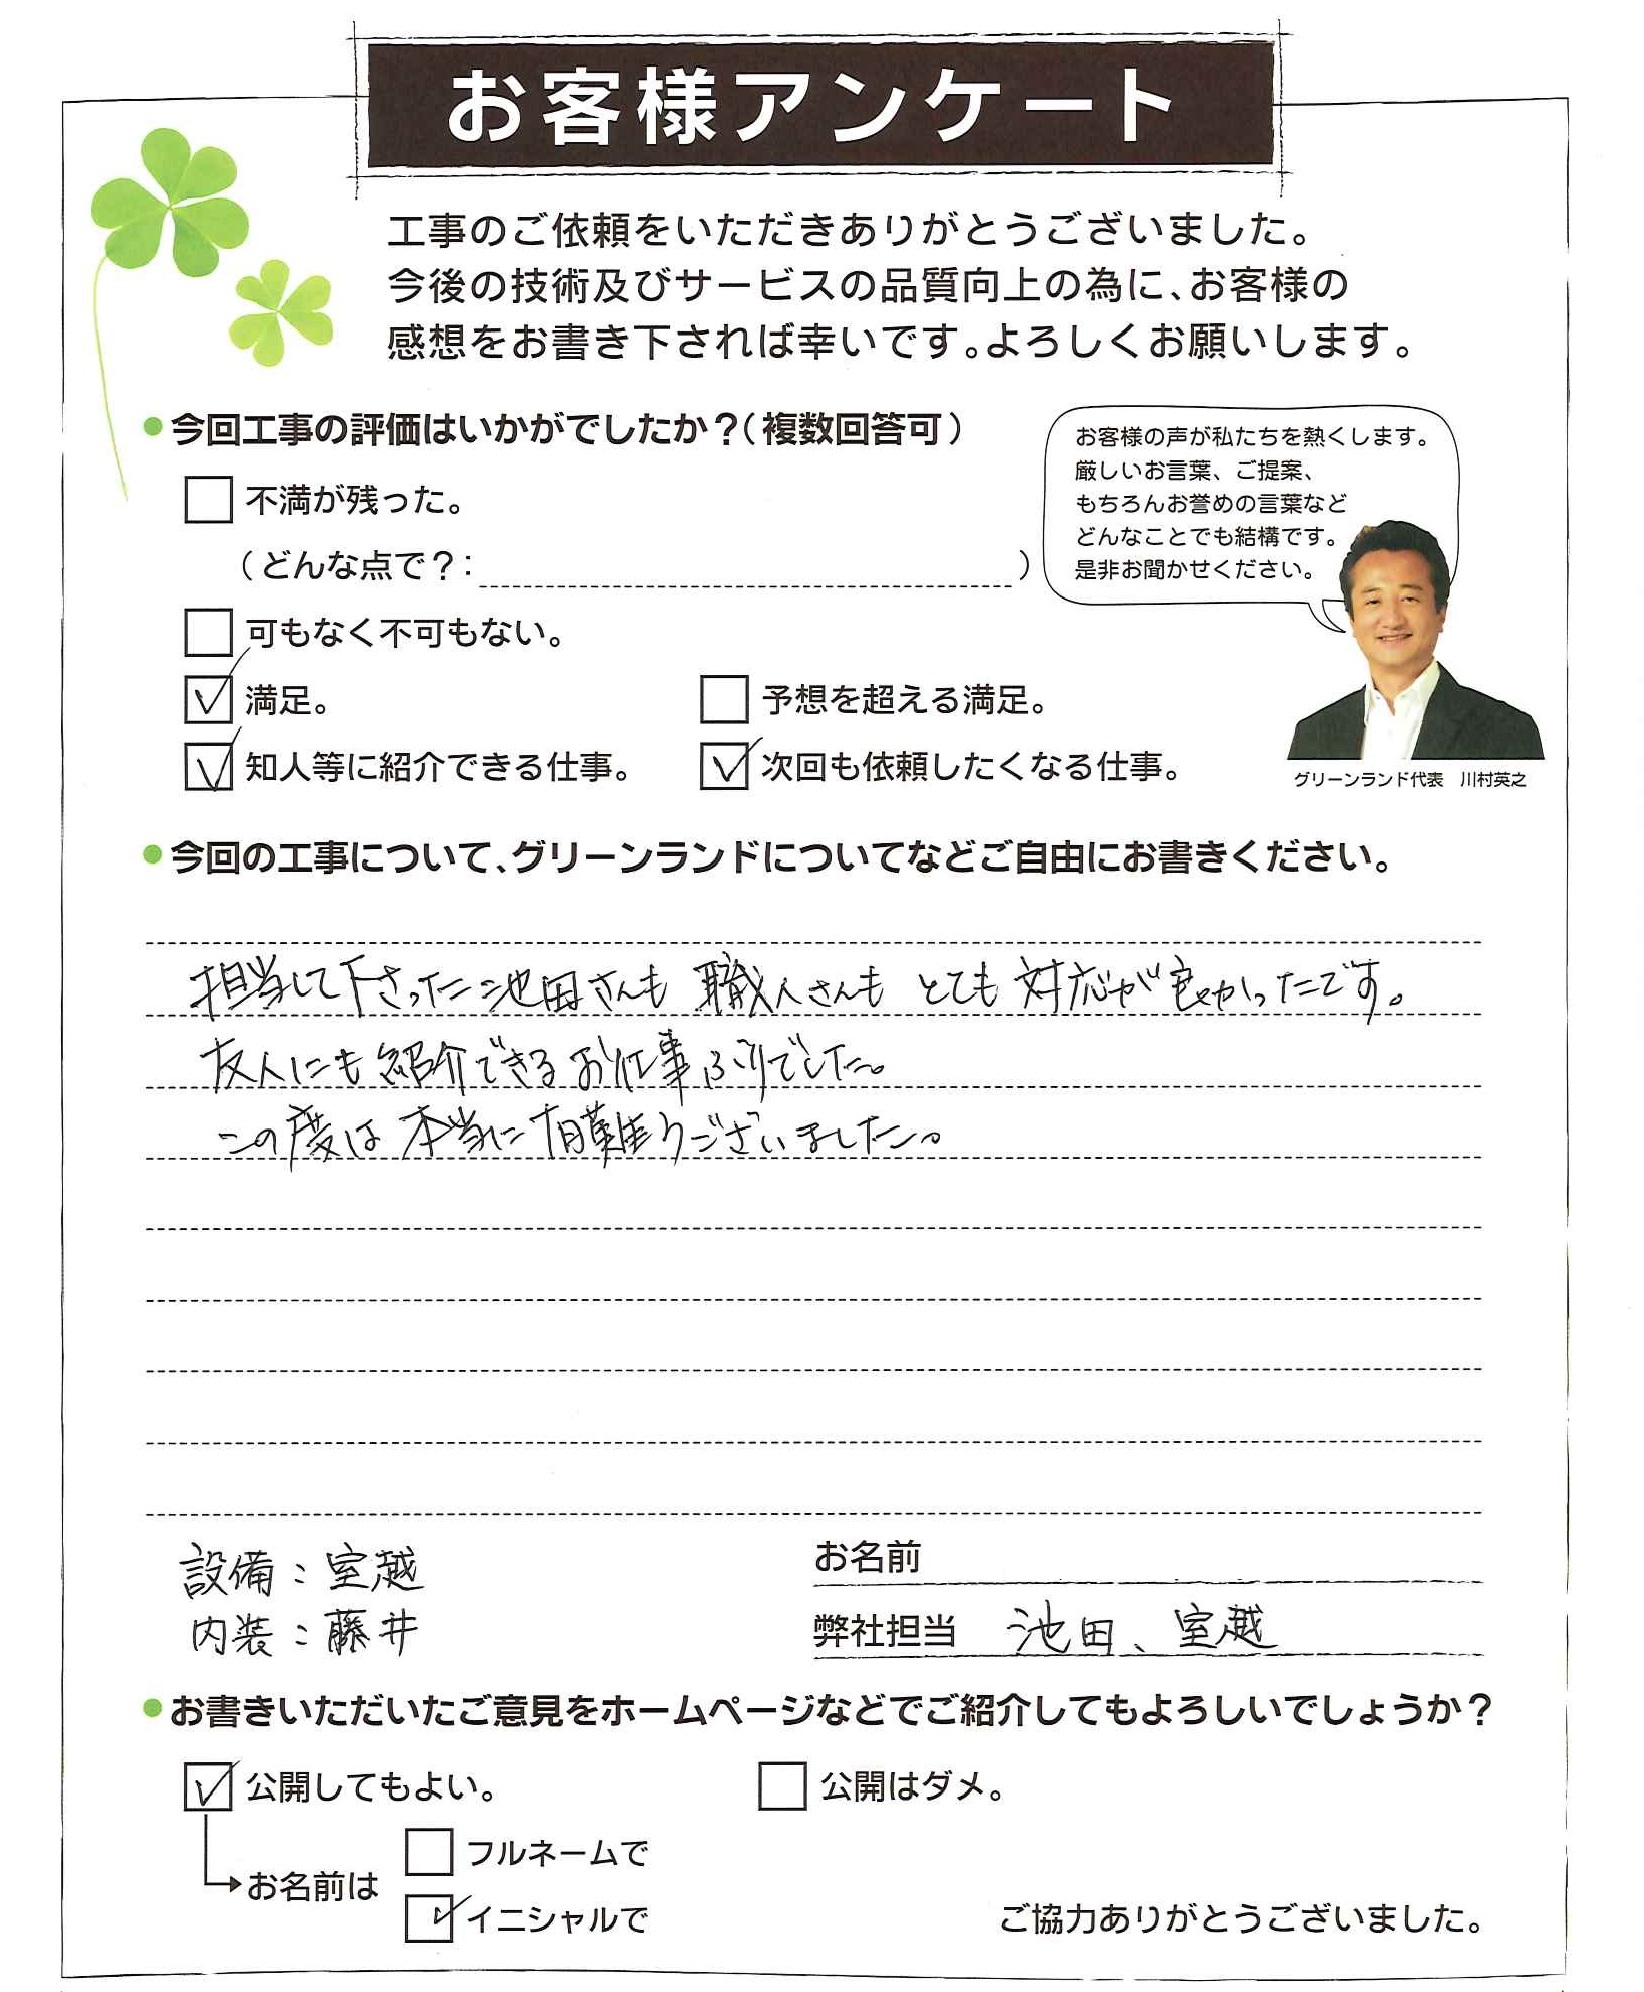 お客様アンケート
工事のご依頼をいただきありがとうございました。
今後の技術及びサービスの品質向上の為に、お客様の
感想をお書き下されば幸いです。よろしくお願いします。
今回工事の評価はいかがでしたか？（複数回答可）
不満が残った。
（どんな点で？： ）
可もなく不可もない。
満足。 予想を超える満足。
知人等に紹介できる仕事。 次回も依頼したくなる仕事。
お客様の声が私たちを熱くします。
厳しいお言葉、ご提案、
もちろんお誉めの言葉など
どんなことでも結構です。
是非お聞かせください。
グリーンランド代表　川村英之
今回の工事について、グリーンランドについてなどご自由にお書きください。
担当して下さった池田さんも 職人さんも とても 対応が良かったです。
友人にも紹介できるお仕事ぶりでした。
この度は 本当に有難うございました。
設備：室越
内装：藤井
お名前
弊社担当 池田、室越
お書きいただいたご意見をホームページなどでご紹介してもよろしいでしょうか？
公開してもよい。 公開はダメ。
お名前は
フルネームで
イニシャルで
ご協力ありがとうございました。